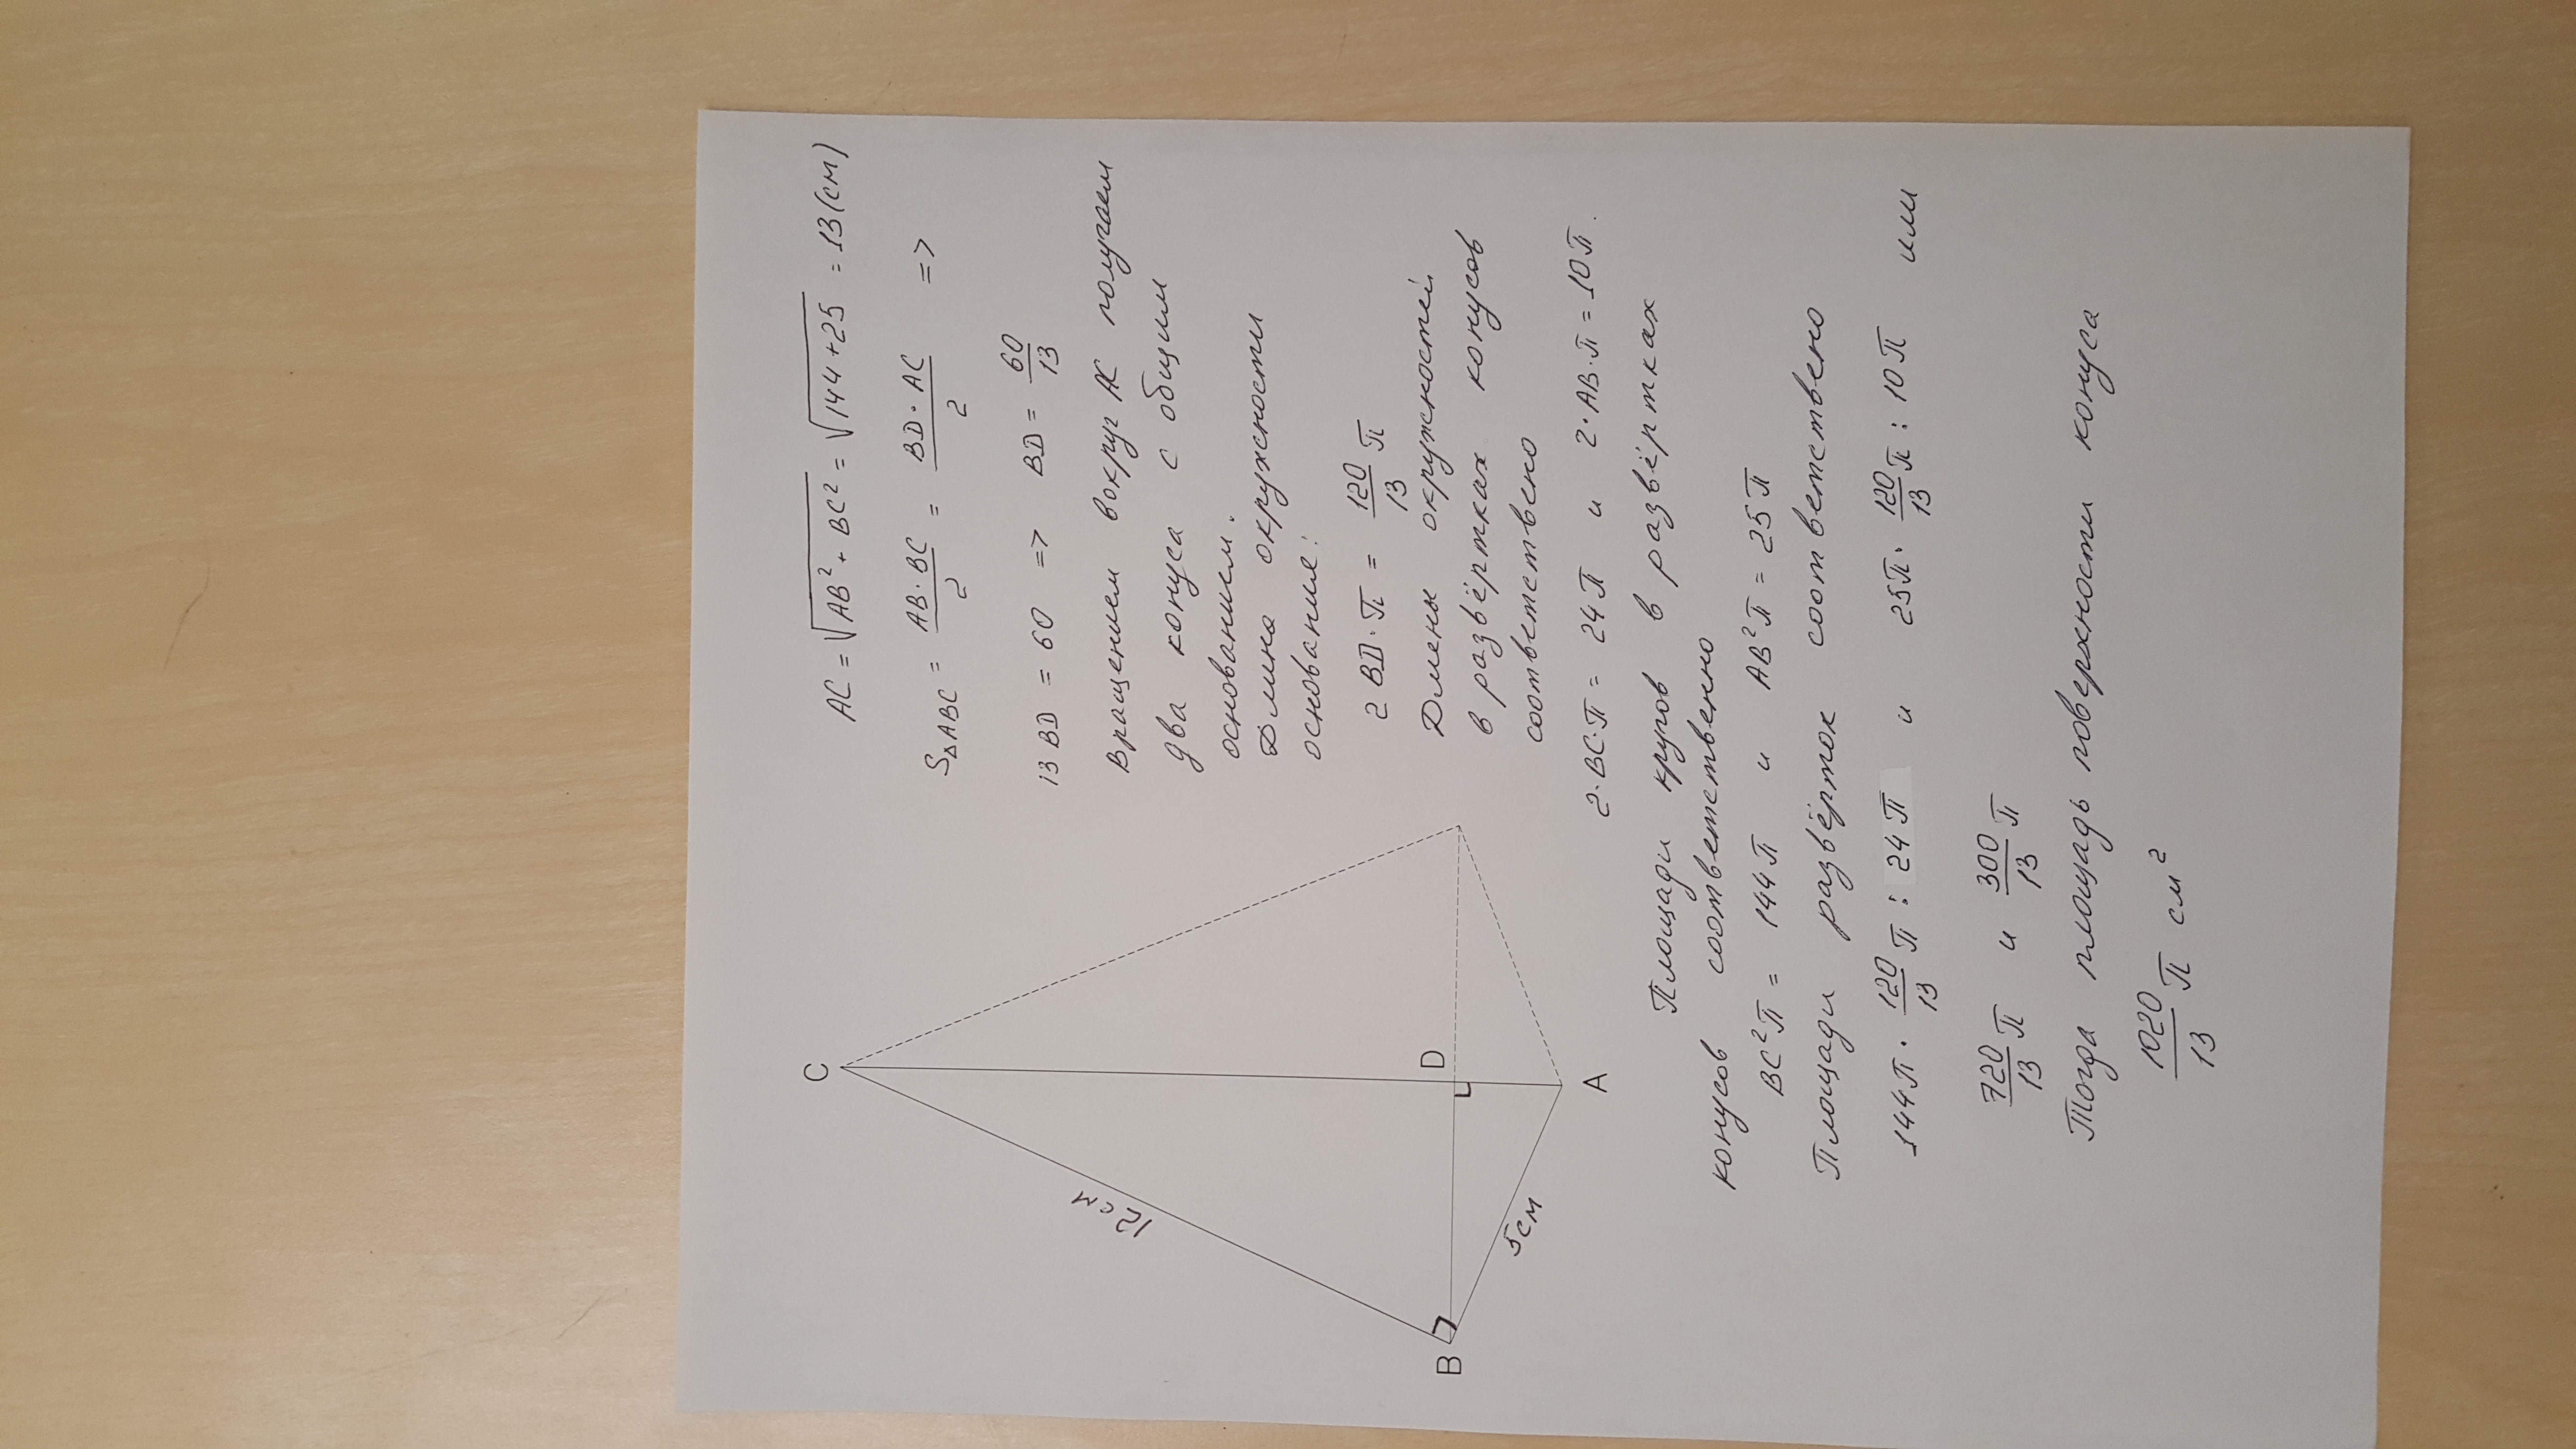 AC = √AB² + BC² = √144 + 25 = 13 (см)
S△ABC = AB · BC / 2 = BD · AC / 2 =>
13 BD = 60 => BD = 60/13
Вращением вокруг AC получаем
два конуса с общим
основанием.
Длина окружности
основание:
2 BD · π = 120/13 π
Длины окружностей
в развёртках конусов
соответствено
2 · BC · π = 24 π и 2 · AB · π = 10 π.
Площади кругов в развёртках
конусов соответственно
BC² π = 144 π и AB² π = 25 π
Площади развёрток соответственно
144 π · 120/13 π : 24 π и 25 π · 120/13 π : 10 π или
720/13 π и 300/13 π
Тогда площадь поверхности конуса
1020/13 π см²
C
12 см
B
D
5 см
A